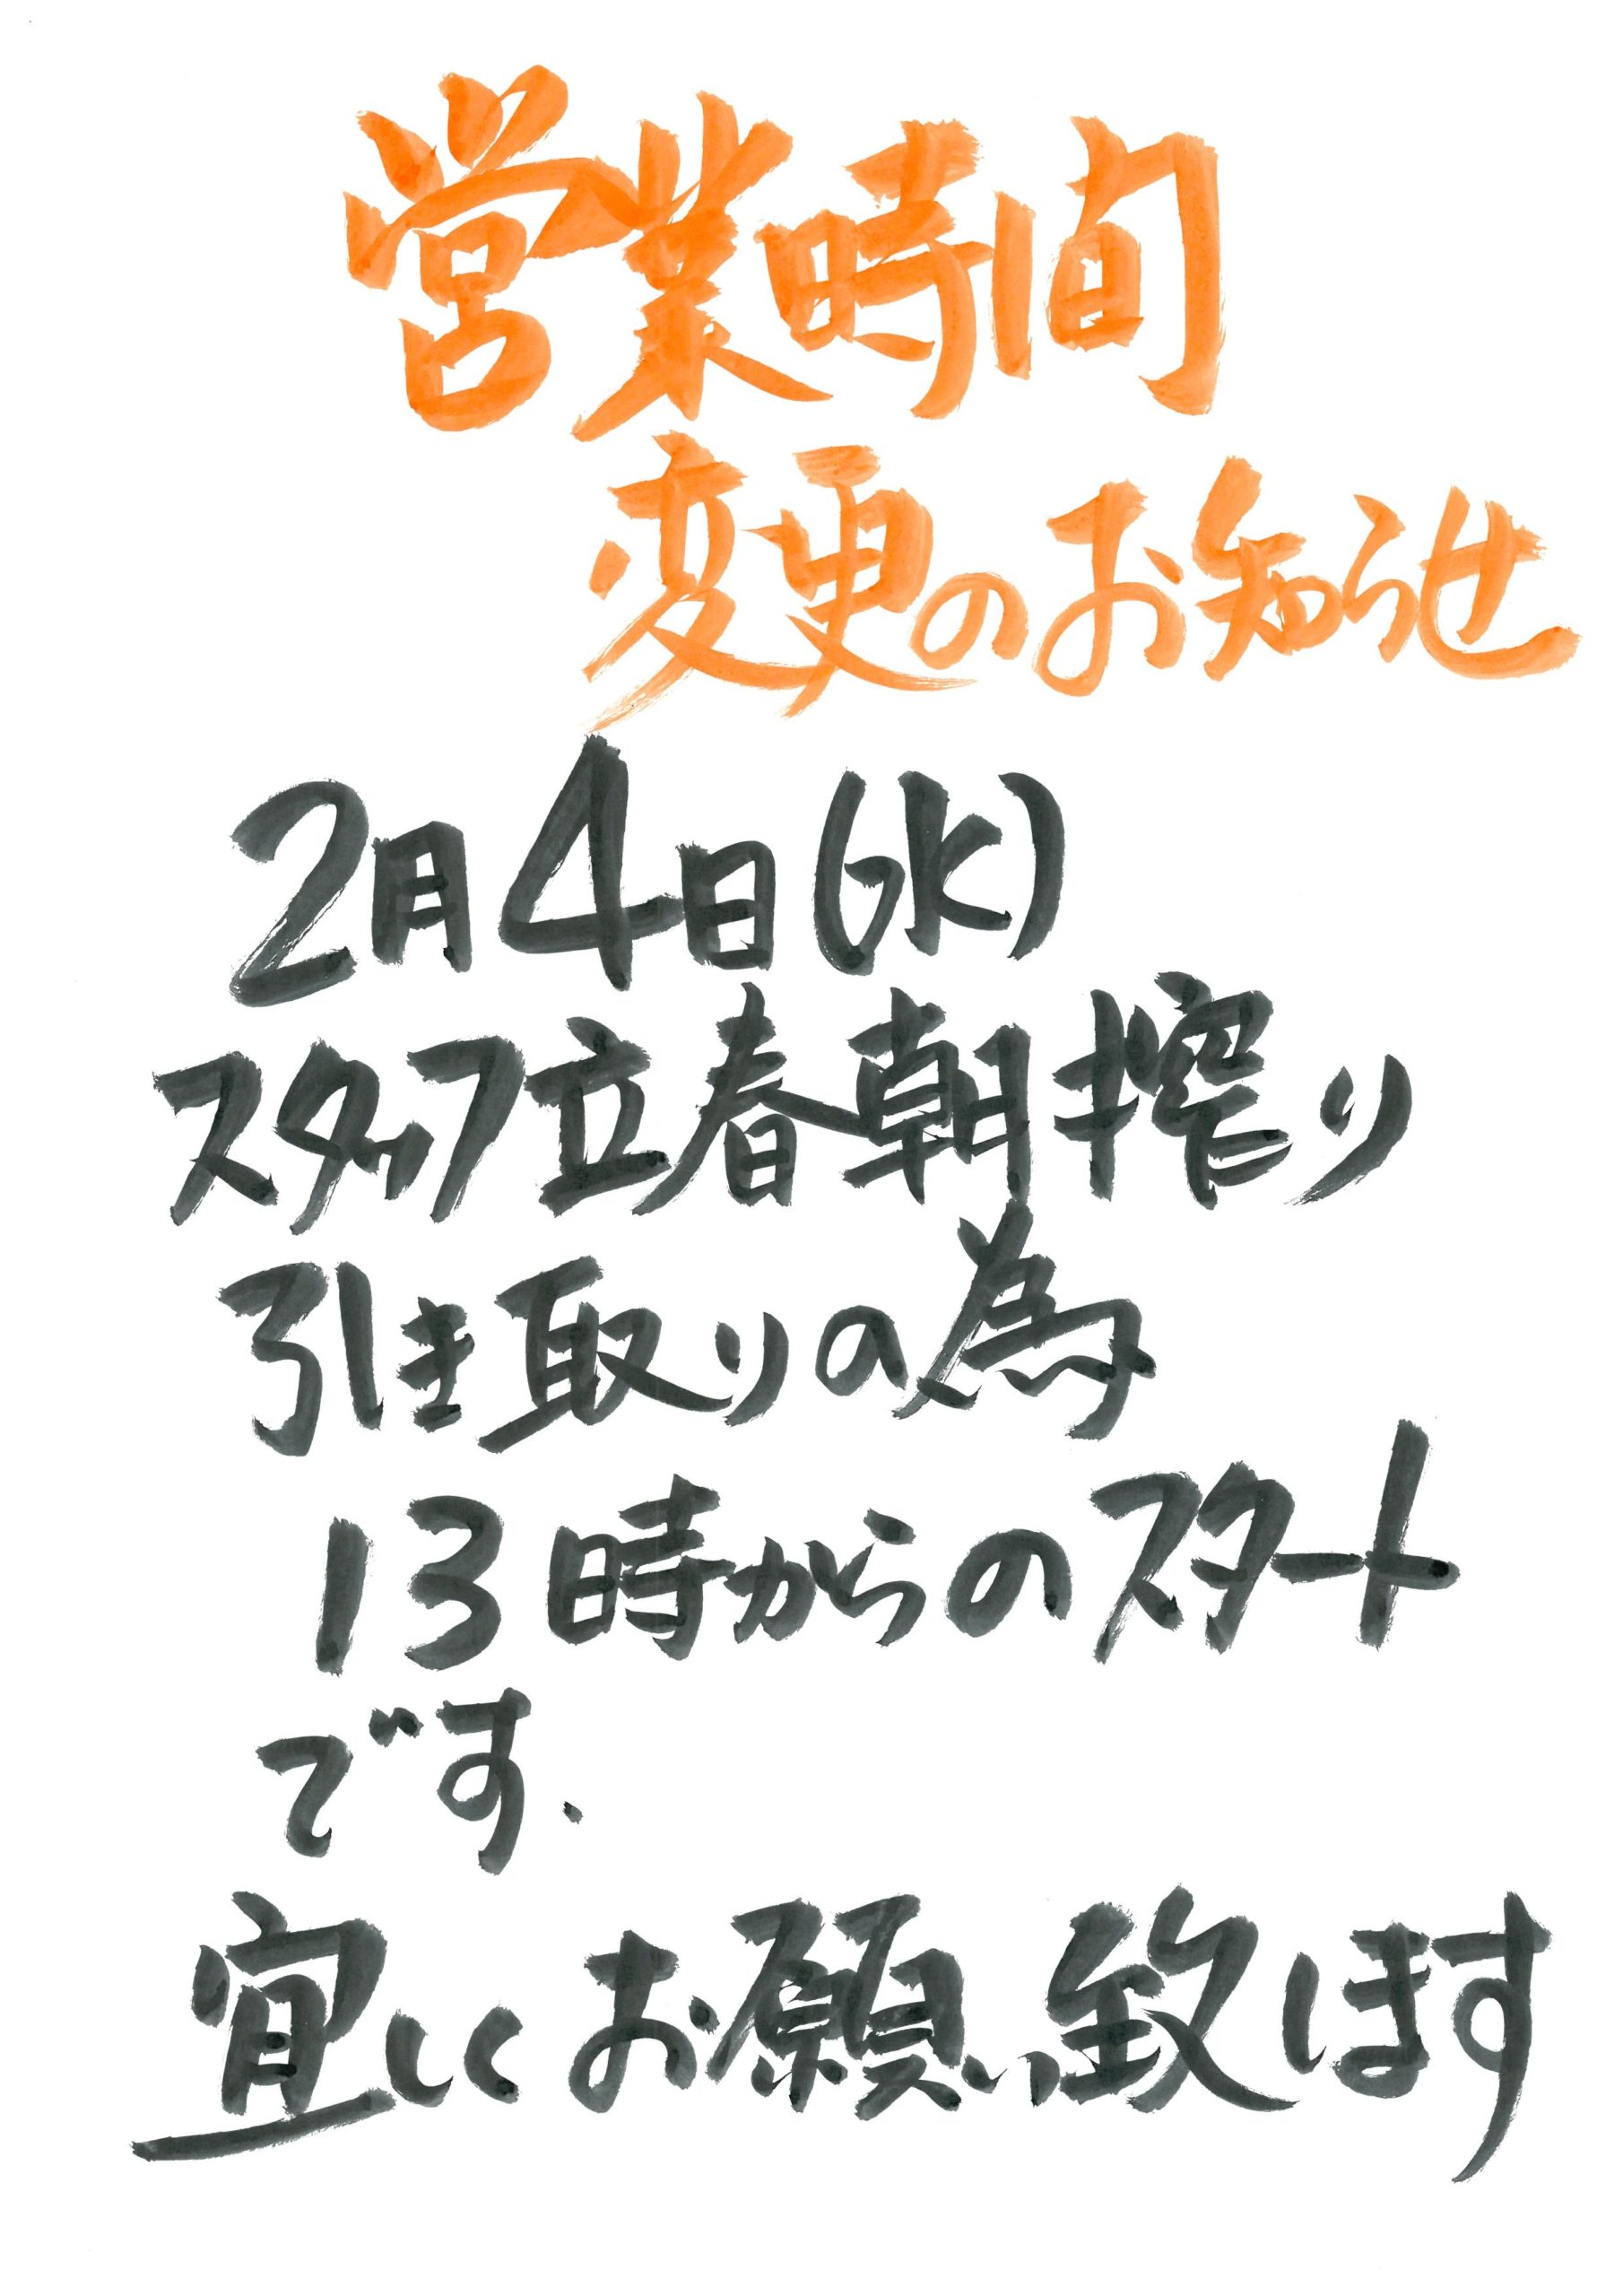 営業時間
変更のお知らせ
2月4日(水)
スタッフ立春朝搾り
引き取りの為
13時からのスタート
です、
宜しくお願い致します